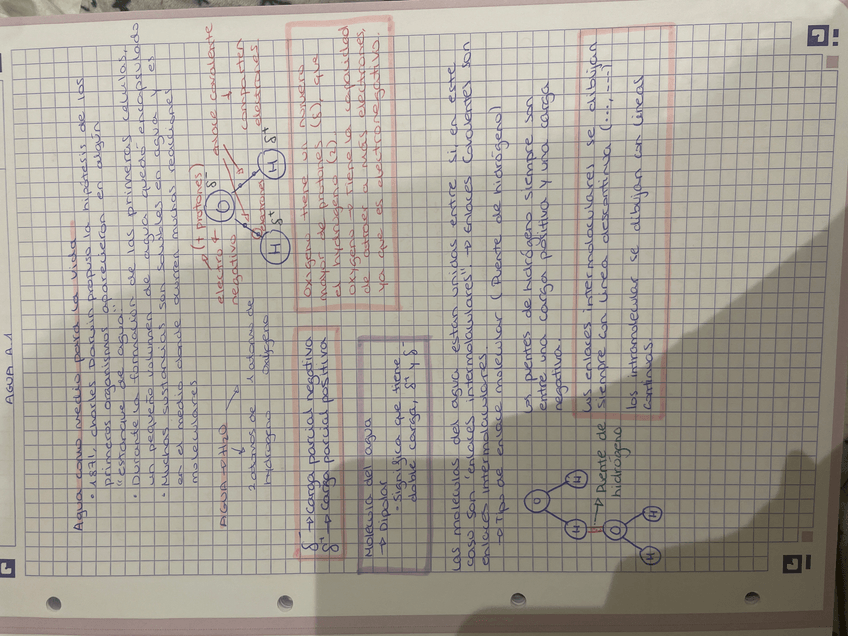 AGUA A.1
Agua como medio para la vida
· 1871, Charles Darwin propuso la hipótesis de los
primeros organismos aparecieron en algún
"estanque de agua"
· Durante la formación de las primeras células,
un pequeño volumen de agua quedó encapsulado
· Muchas sustancias son solubles en agua y es
en el medio donde ocurren muchas reacciones
moleculares
AGUA → H2O
2 átomos de
hidrógeno
1 átomo de
oxígeno
(+ protones)
electro
negativo
enlace covalente
comparten
electrones
δ-
O
H
H
δ+
δ+
δ- → Carga parcial negativa
δ+ → Carga parcial positiva
Oxígeno tiene un número
mayor de protones (8), que
el hidrógeno (2).
Oxígeno → tiene la capacidad
de atraer a más electrones,
ya que es electronegativo.
Molécula del agua
→ Dipolar
· Significa que tiene
doble carga, δ+ y δ-
Las moléculas del agua estan unidas entre si en este
caso son "enlaces intermolaculares" → enlaces covalentes son
enlaces intermolaculares.
→ Tipo de enlace molecular (Puente de hidrógeno)
O
H
H
O
H
H
→ Puente de
hidrógeno
Los puentes de hidrógeno siempre son
entre una carga positiva y una carga
negativa.
Los enlaces intermolaculares se dibujan
siempre con linea descontinua (..., ---)
los intramolecular se dibujan con lineas
continuas.